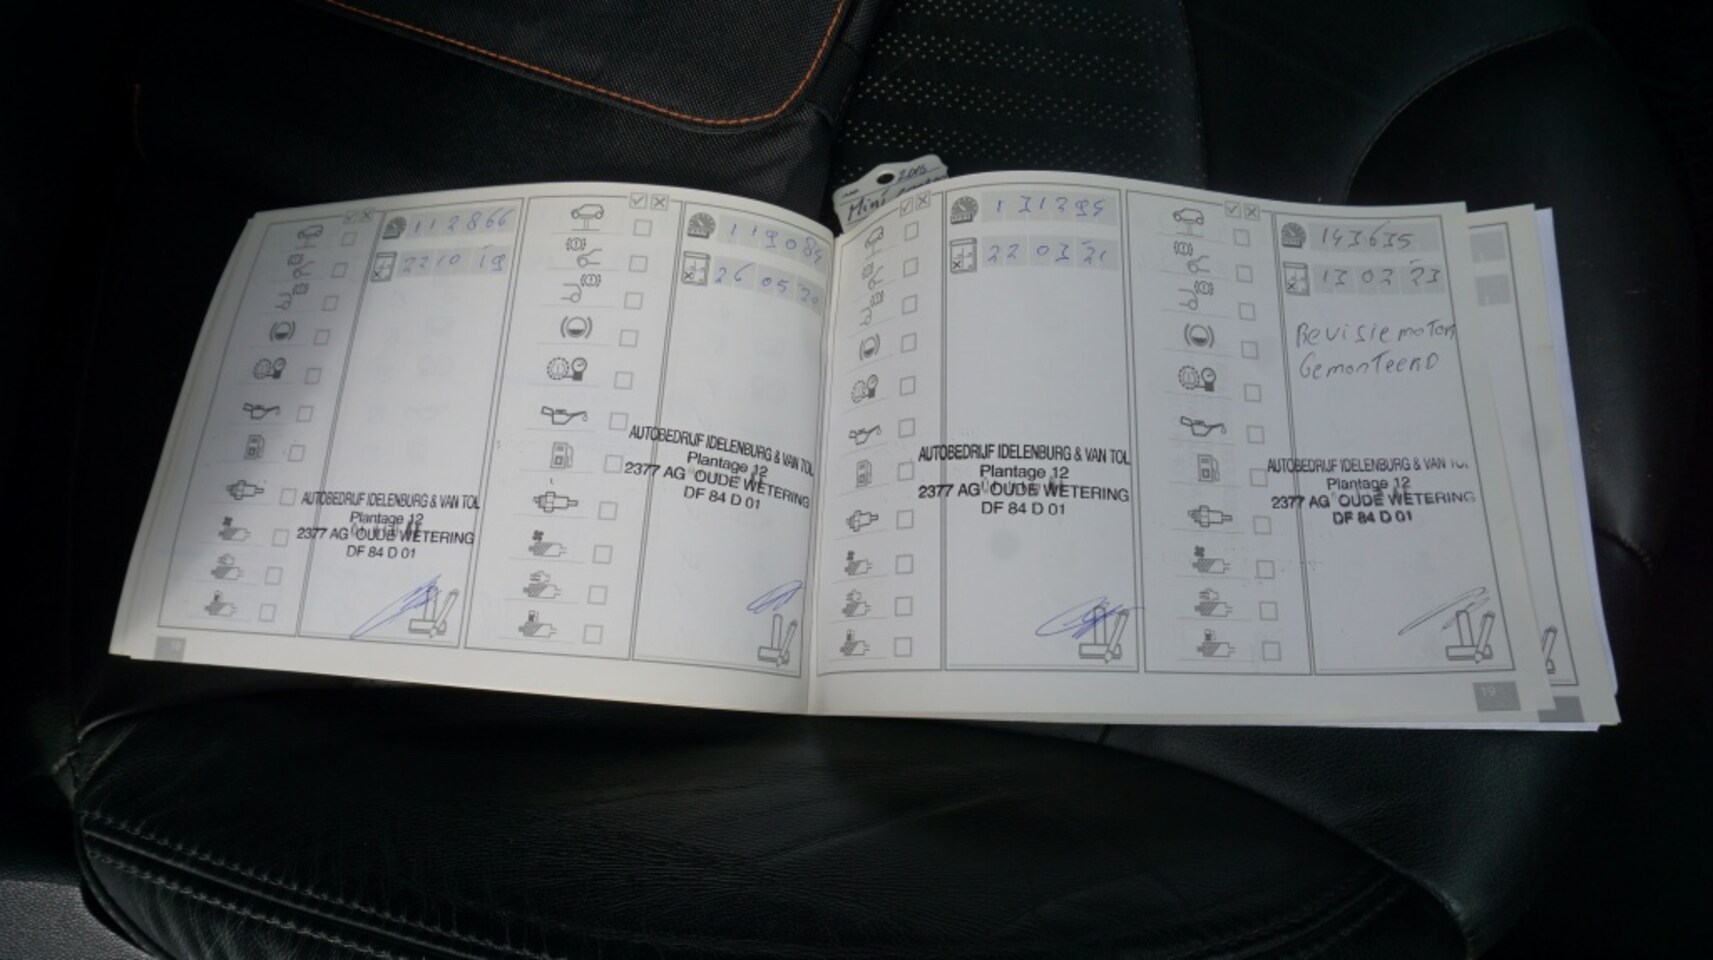 112866
22 10 19
AUTOBEDRIJF IDELENBURG & VAN TOL
Plantage 12
2377 AG OUDE WETERING
DF 84 D 01
119084
26 05 20
AUTOBEDRIJF IDELENBURG & VAN TOL
Plantage 12
2377 AG OUDE WETERING
DF 84 D 01
2015
Mini
131394
22 03 21
AUTOBEDRIJF IDELENBURG & VAN TOL
Plantage 12
2377 AG OUDE WETERING
DF 84 D 01
143635
13 02 23
Revisiemoton
GemonTeenD
AUTOBEDRIJF IDELENBURG & VAN TOL
Plantage 12
2377 AG OUDE WETERING
DF 84 D 01
19